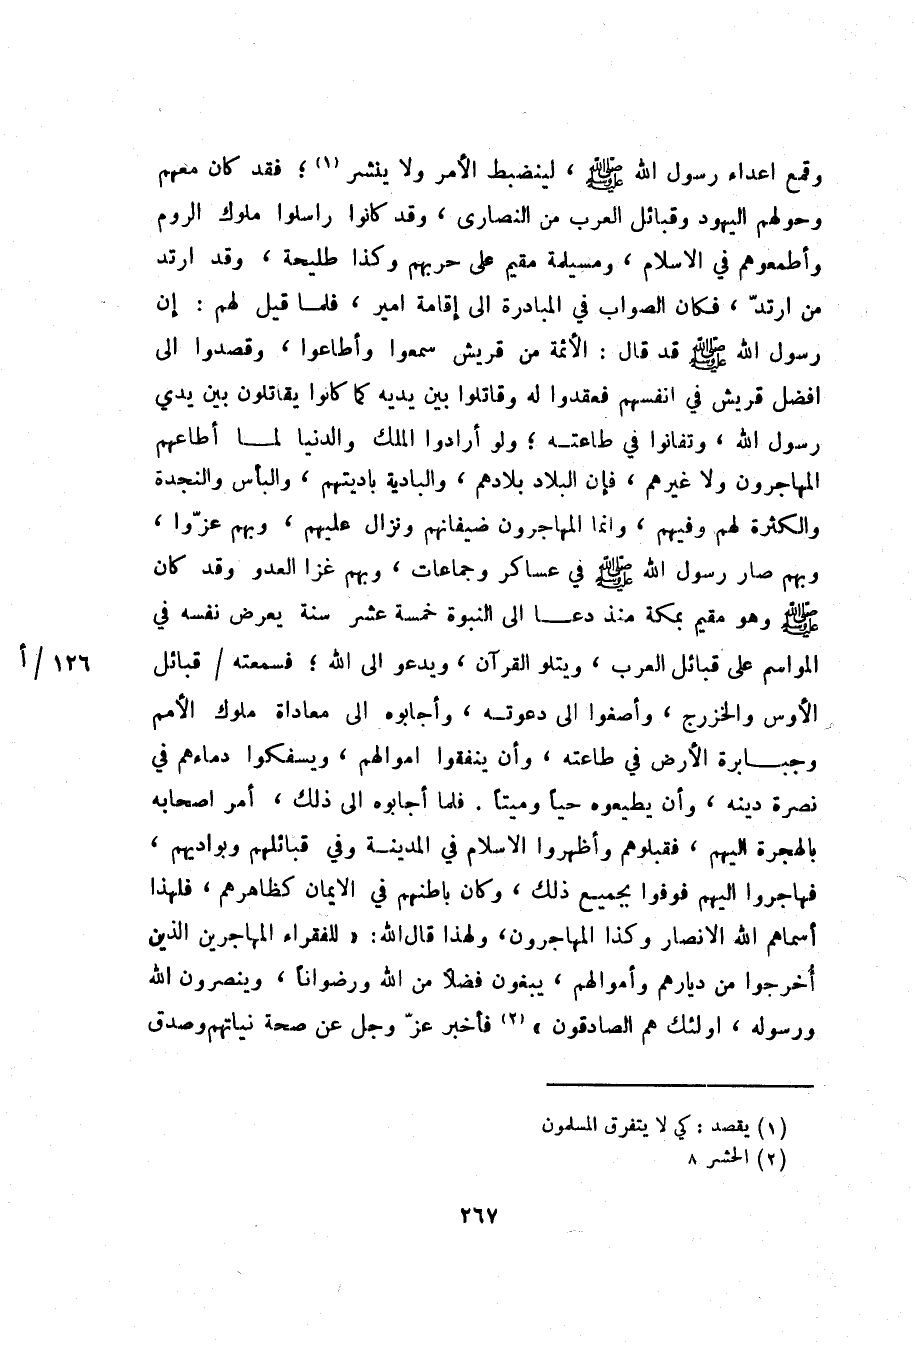 وقمع اعداء رسول الله ﷺ ، لينضبط الأمر ولا ينشر (١) ؛ فقد كان معهم
وحولهم اليهود وقبائل العرب من النصارى ، وقد كانوا راسلوا ملوك الروم
وأطمعوهم في الاسلام ، ومسيلمة مقيم على حربهم وكذا طليحة ، وقد ارتد
من ارتدّ ، فكان الصواب في المبادرة الى إقامة امير ، فلما قيل لهم : إن
رسول الله ﷺ قد قال : الأئمة من قريش سمعوا وأطاعوا ، وقصدوا الى
افضل قريش في انفسهم فعقدوا له وقاتلوا بين يديه كما كانوا يقاتلون بين يدي
رسول الله ، وتفانوا في طاعته ؛ ولو أرادوا الملك والدنيا لما أطاعهم
المهاجرون ولا غيرهم ، فإن البلاد بلادهم ، والبادية باديتهم ، والبأس والنجدة
والكثرة لهم وفيهم ، وانما المهاجرون ضيفانهم ونزال عليهم ، وبهم عزّوا ،
وبهم صار رسول الله ﷺ في عساكر وجماعات ، وبهم غزا العدو وقد كان
ﷺ وهو مقيم بمكة منذ دعا الى النبوة خمسة عشر سنة يعرض نفسه في
المواسم على قبائل العرب ، ويتلو القرآن ، ويدعو الى الله ؛ فسمعته / قبائل
١٢٦ / أ
الأوس والخزرج ، وأصغوا الى دعوته ، وأجابوه الى معاداة ملوك الأمم
وجبابرة الأرض في طاعته ، وأن ينفقوا اموالهم ، ويسفكوا دماءهم في
نصرة دينه ، وأن يطيعوه حياً وميتاً . فلما أجابوه الى ذلك ، أمر اصحابه
بالهجرة اليهم ، فقبلوهم وأظهروا الاسلام في المدينة وفي قبائلهم وبواديهم ،
فهاجروا اليهم فوفوا بجميع ذلك ، وكان باطنهم في الايمان كظاهرهم ، فلهذا
أسماهم الله الانصار وكذا المهاجرون، ولهذا قال الله: « للفقراء المهاجرين الذين
أُخرجوا من ديارهم وأموالهم ، يبغون فضلاً من الله ورضواناً ، وينصرون الله
ورسوله ، اولئك هم الصادقون » (٢) فأخبر عزّ وجل عن صحة نياتهم وصدق
(١) يقصد : كي لا يتفرق المسلمون
(٢) الحشر ٨
٢٦٧